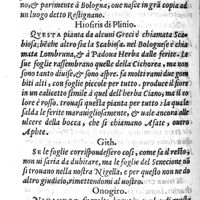 no, & parimente à Bologna, oue nasce in grā copia ad
un luogo detto Restignano.
Hiosiris di Plinio.
QVESTA pianta da alcuni Greci è chiamata Sca-
biosa; bēche altro sia la Scabiosa. nel Bolognese è chia
mata Lombruna, & à Padoua Herba dalle ferite. Le
sue foglie rassembrano quelle della Cichorea, ma non
sono tanto diuise, & sono aspre. fa molti rami due gom
biti alti, con foglie piccole per tutto. produce il fiore
in un calicetto come ha quello del Ciano; ma il co
lore è rosso. trouasi questa pianta per tutto. la qual
salda le ferite marauigliosamente, & uale ancora alle
ulcere della bocca, che si chiamano Afate, outro
Aphte.
Gith.
SE le foglie corrispondessero così, come fa il resto,
non ui saria da dubitare, ma le foglie del Senecione nō
si trouano nella nostra Nigella, e per questo non ne do
altro giudicio, rimettendomi al uostro.
Onogiro.